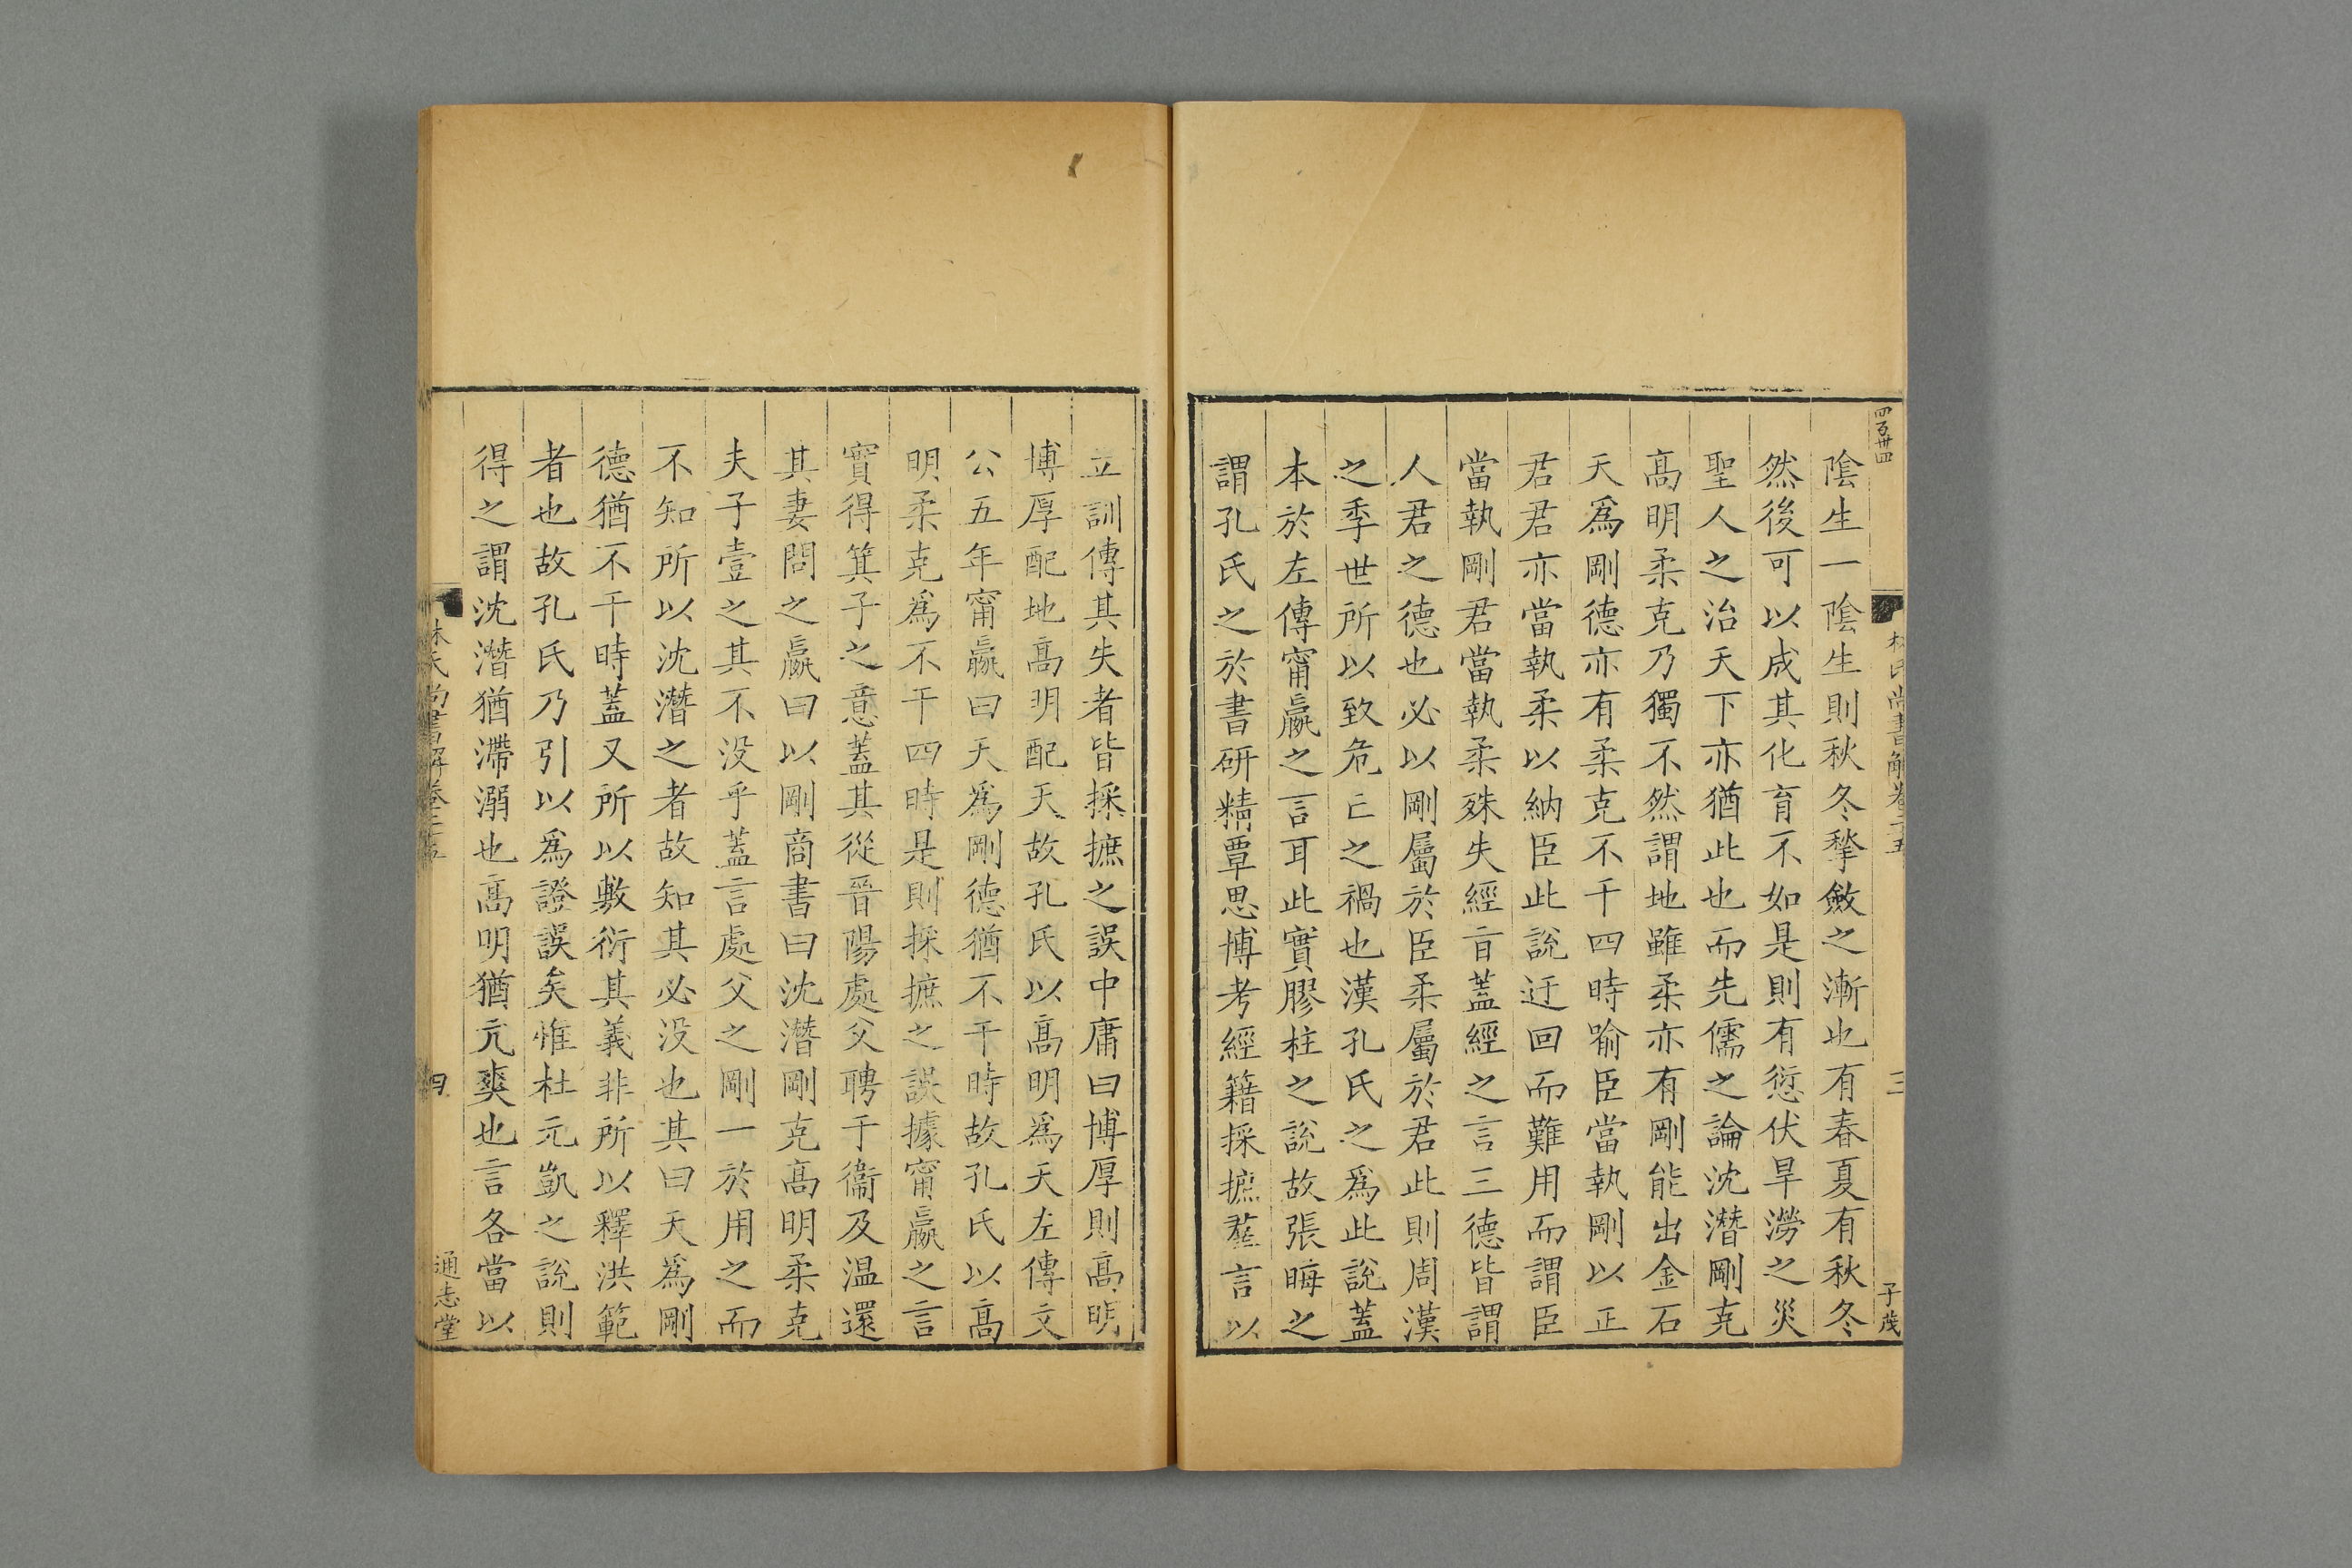 四百卅四
林氏尚書解卷二十五
三
子茂
陰生一陰生則秋冬揫斂之漸也有春夏有秋冬
然後可以成其化育不如是則有愆伏旱澇之災
聖人之治天下亦猶此也而先儒之論沈潛剛克
髙明柔克乃獨不然謂地雖柔亦有剛能出金石
天爲剛德亦有柔克不干四時喻臣當執剛以正
君君亦當執柔以納臣此說迂回而難用而謂臣
當執剛君當執柔殊失經旨蓋經之言三德皆謂
人君之德也必以剛屬於臣柔屬於君此則周漢
之季世所以致危亡之禍也漢孔氏之爲此說蓋
本於左傳甯嬴之言耳此實膠柱之說故張晦之
謂孔氏之於書研精覃思博考經籍採摭羣言以
立訓傳其失者皆採摭之誤中庸曰博厚則髙明
博厚配地髙明配天故孔氏以髙明爲天左傳文
公五年甯嬴曰天爲剛德猶不干時故孔氏以髙
明柔克爲不干四時是則採摭之誤據甯嬴之言
實得箕子之意蓋其從晉陽處父聘于衞及温還
其妻問之嬴曰以剛商書曰沈潛剛克髙明柔克
夫子壹之其不没乎蓋言處父之剛一於用之而
不知所以沈潛之者故知其必没也其曰天爲剛
德猶不干時蓋又所以敷衍其義非所以釋洪範
者也故孔氏乃引以爲證誤矣惟杜元凱之說則
得之謂沈潛猶滯溺也髙明猶亢爽也言各當以
林氏尚書解卷二十五
四
通志堂